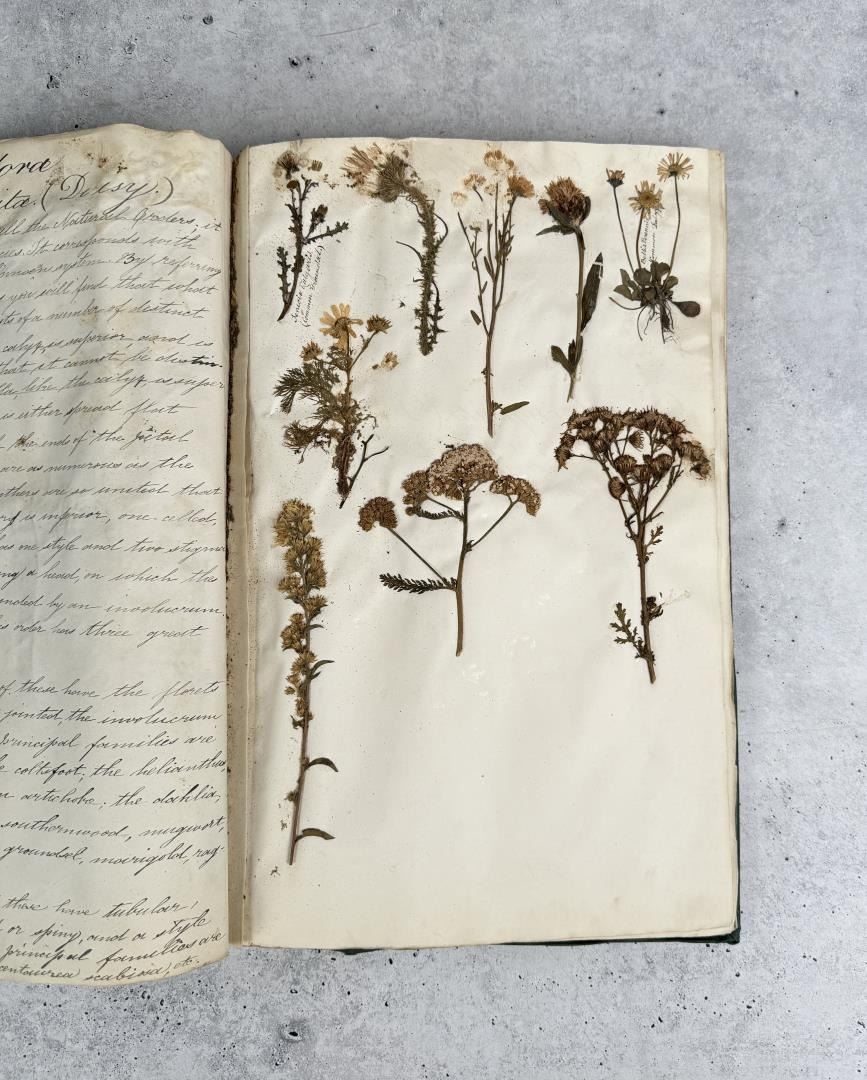 lora
itæ. (Daisy.)
all the Natural Orders, it
ues. It corresponds with
system. By referring
you will find that what
ts of a number of distinct
calyx, is superior, and is
that it cannot be distin-
lla, like the calyx, is super
is either spread flat
the ends of the
are as numerous as the
nthers are so united that
ry is inferior, one-celled,
has one style and two stigma
ng a head, on which the
unded by an involucrum.
is order has three great
of these have the florets
jointed, the involucrum
Principal families are
e coltsfoot; the helianthus,
m artichoke; the dahlia;
southernwood, mugwort,
groundsel, marigold, rag-
these have tubular,
d or spiny, and a style
Principal families are
centaurea scabiosa, etc.
Senecio vulgaris
(Common Groundsel)
(Common Daisy)